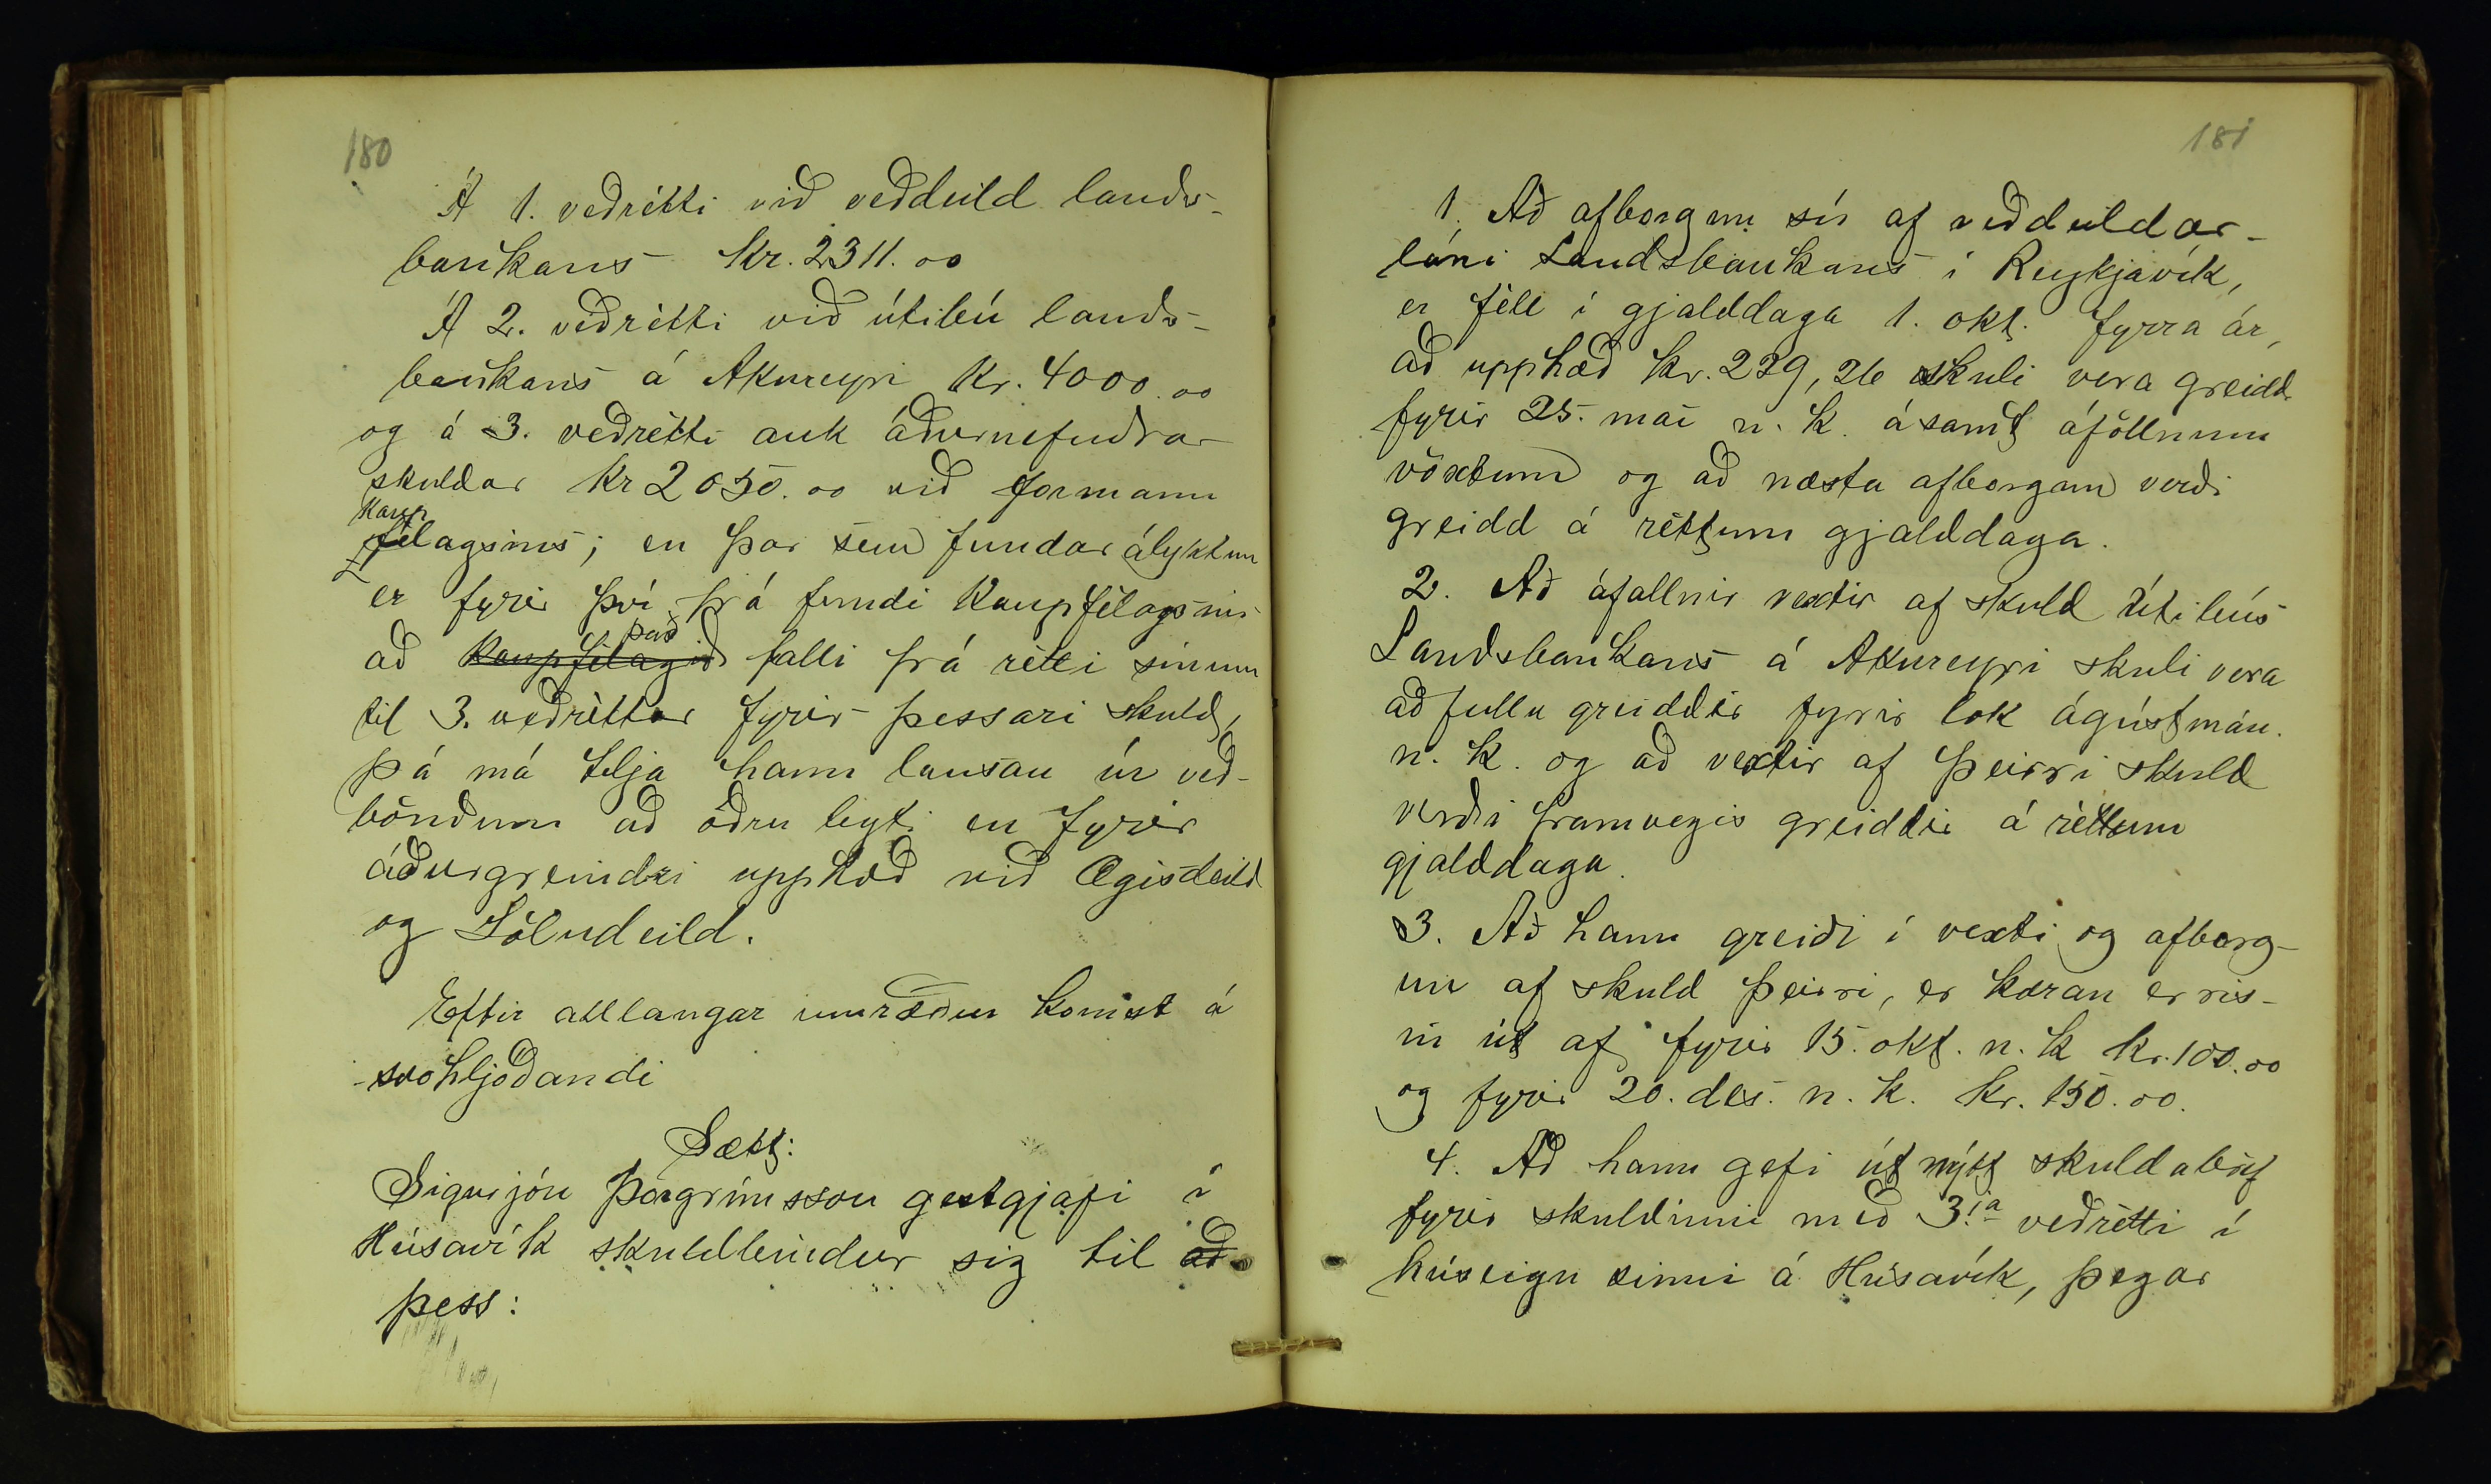 180
Á 1. veðrétti við veðdeild lands-
bankans kr. 2311.00
Á 2. veðrétti við útibú lands-
bankans á Akureyri Kr. 4000.00
og á 3. veðrétti auk áðurnefndrar
skuldar Kr 2050.00 við formann
Kaup
félagsins; en þar sem fundarályktun
er fyrir því frá fundi Kaupfélagsins
það
að Kaupfélagið falli frá rétti sínum
til 3. veðréttar fyrir þessari skuld,
þá má telja hann lausan úr veð-
böndum að öðru leyti en fyrir
áðurgreindri upphæð við Ægisdeild
og Söludeild.
Eftir alllangar umræður komst á
svohljóðandi
Sætt:
Sigurjón Þorgrímsson gestgjafi í
Húsavík skuldbindur sig til að
þess:
181
1. Að afborgun sín af veðdeildar-
láni Landsbankans í Reykjavík,
er féll í gjalddaga 1. okt. fyrra ár,
að upphæð kr. 229,26 skuli vera greidd
fyrir 25. maí n. k. ásamt áföllnum
vöxtum og að næsta afborgun verði
greidd á réttum gjalddaga.
2. Að áfallnir vextir af skuld Útibús
Landsbankans á Akureyri skuli vera
að fullu greiddir fyrir lok ágústmán.
n. k. og að vextir af þeirri skuld
verði framvegis greiddir á réttum
gjalddaga.
3. Að hann greiði í vexti og afborg-
un af skuld þeirri, er kæran er ris-
in út af fyrir 15. okt. n. k kr. 100.00
og fyrir 20. des. n. k. kr. 150.00.
4. Að hann gefi út nýtt skuldabréf
fyrir skuldinni með 3ja veðrétti í
húseign sinni á Húsavík, þegar